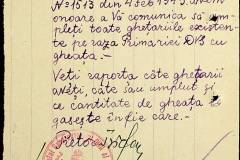 No 1513 din 4 Feb 1943. Avem
onoare a Vă comunica să
umpleți toate ghețăriile existen-
te pe raza Primăriei DVS cu
gheață.
Veți raporta câte ghețării
aveți, câte sau umplut și
ce cantitate de gheață se
găsește în fie care.
Pretor